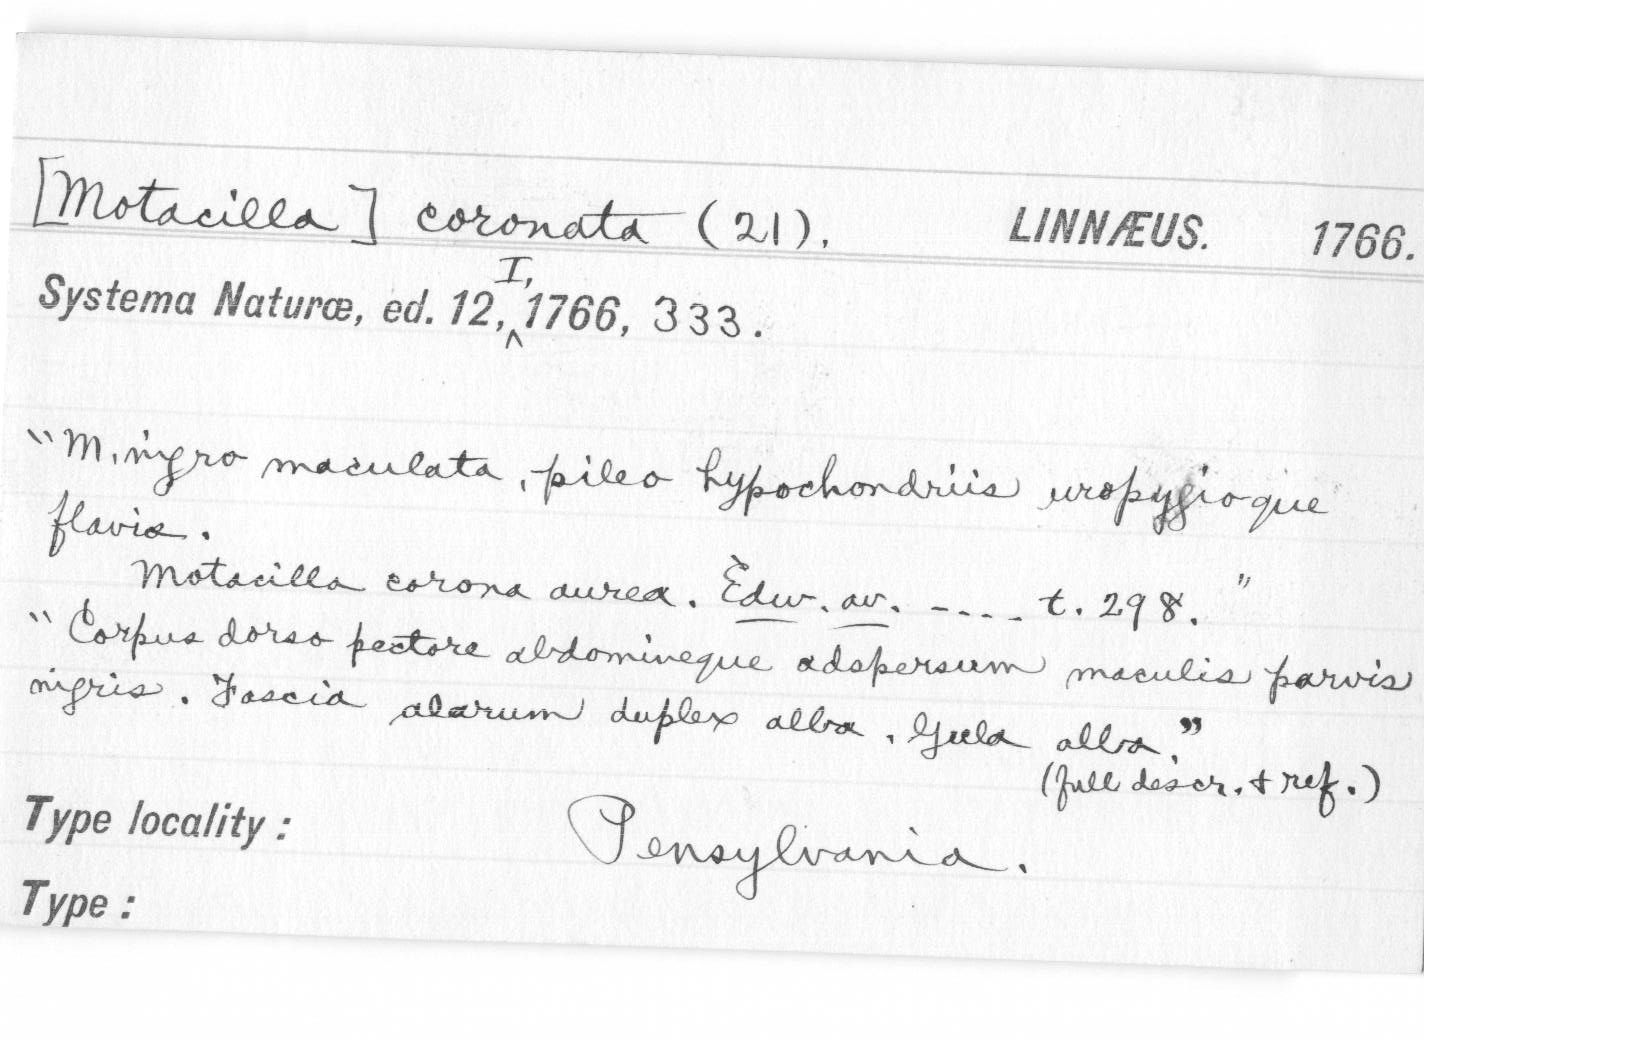 [Motacilla] coronata (21). LINNÆUS. 1766.
Systema Naturæ, ed. 12, I, 1766, 333.
"M. nigro maculata, pileo hypochondriis uropygioque
flavis.
Motacilla corona aurea. Edw. av. ---- t. 298."
"Corpus dorso pectore abdomineque adspersum maculis parvis
nigris. Fascia alarum duplex alba. Gula alba."
(full descr. & ref.)
Type locality: Pensylvania.
Type: